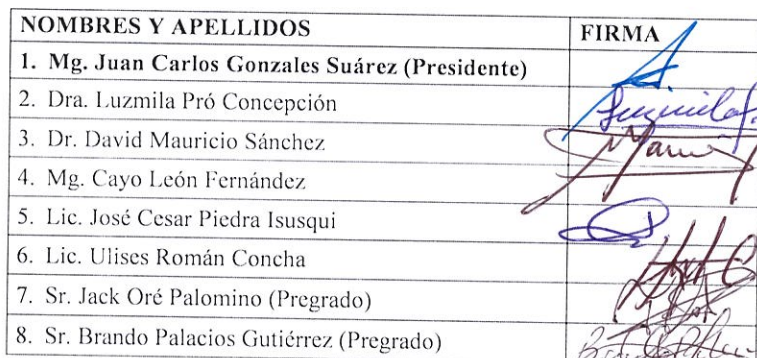 NOMBRES Y APELLIDOS FIRMA
1. Mg. Juan Carlos Gonzales Suárez (Presidente)
2. Dra. Luzmila Pró Concepción
3. Dr. David Mauricio Sánchez
4. Mg. Cayo León Fernández
5. Lic. José Cesar Piedra Isusqui
6. Lic. Ulises Román Concha
7. Sr. Jack Oré Palomino (Pregrado)
8. Sr. Brando Palacios Gutiérrez (Pregrado)